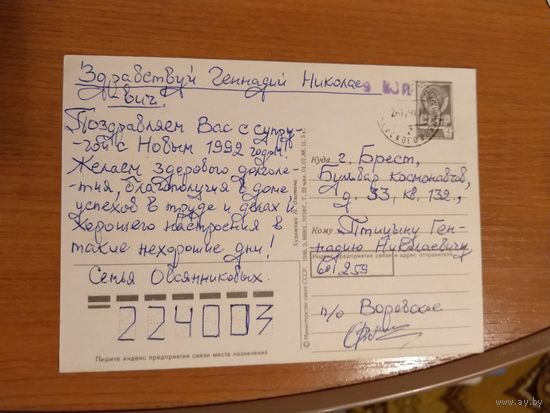 Здравствуй Геннадий Николае-
вич.
Поздравляем Вас с супру-
-гой с Новым 1992 годом!
Желаем здорового долголе-
-тия, благополучия в доме
успехов в труде и делах и
хорошего настроения в
такие нехорошие дни!
Семья Овсянниковых.
224003
Пишите индекс предприятия связи места назначения
Куда г. Брест,
Бульвар Космонавтов,
д. 33, кв. 132.,
Кому Птицыну Ген-
надию Николаевичу
Индекс предприятия связи и адрес отправителя
601259
п/о Воровское
© Министерство связи СССР, 1988.
Художник
www.ay.by